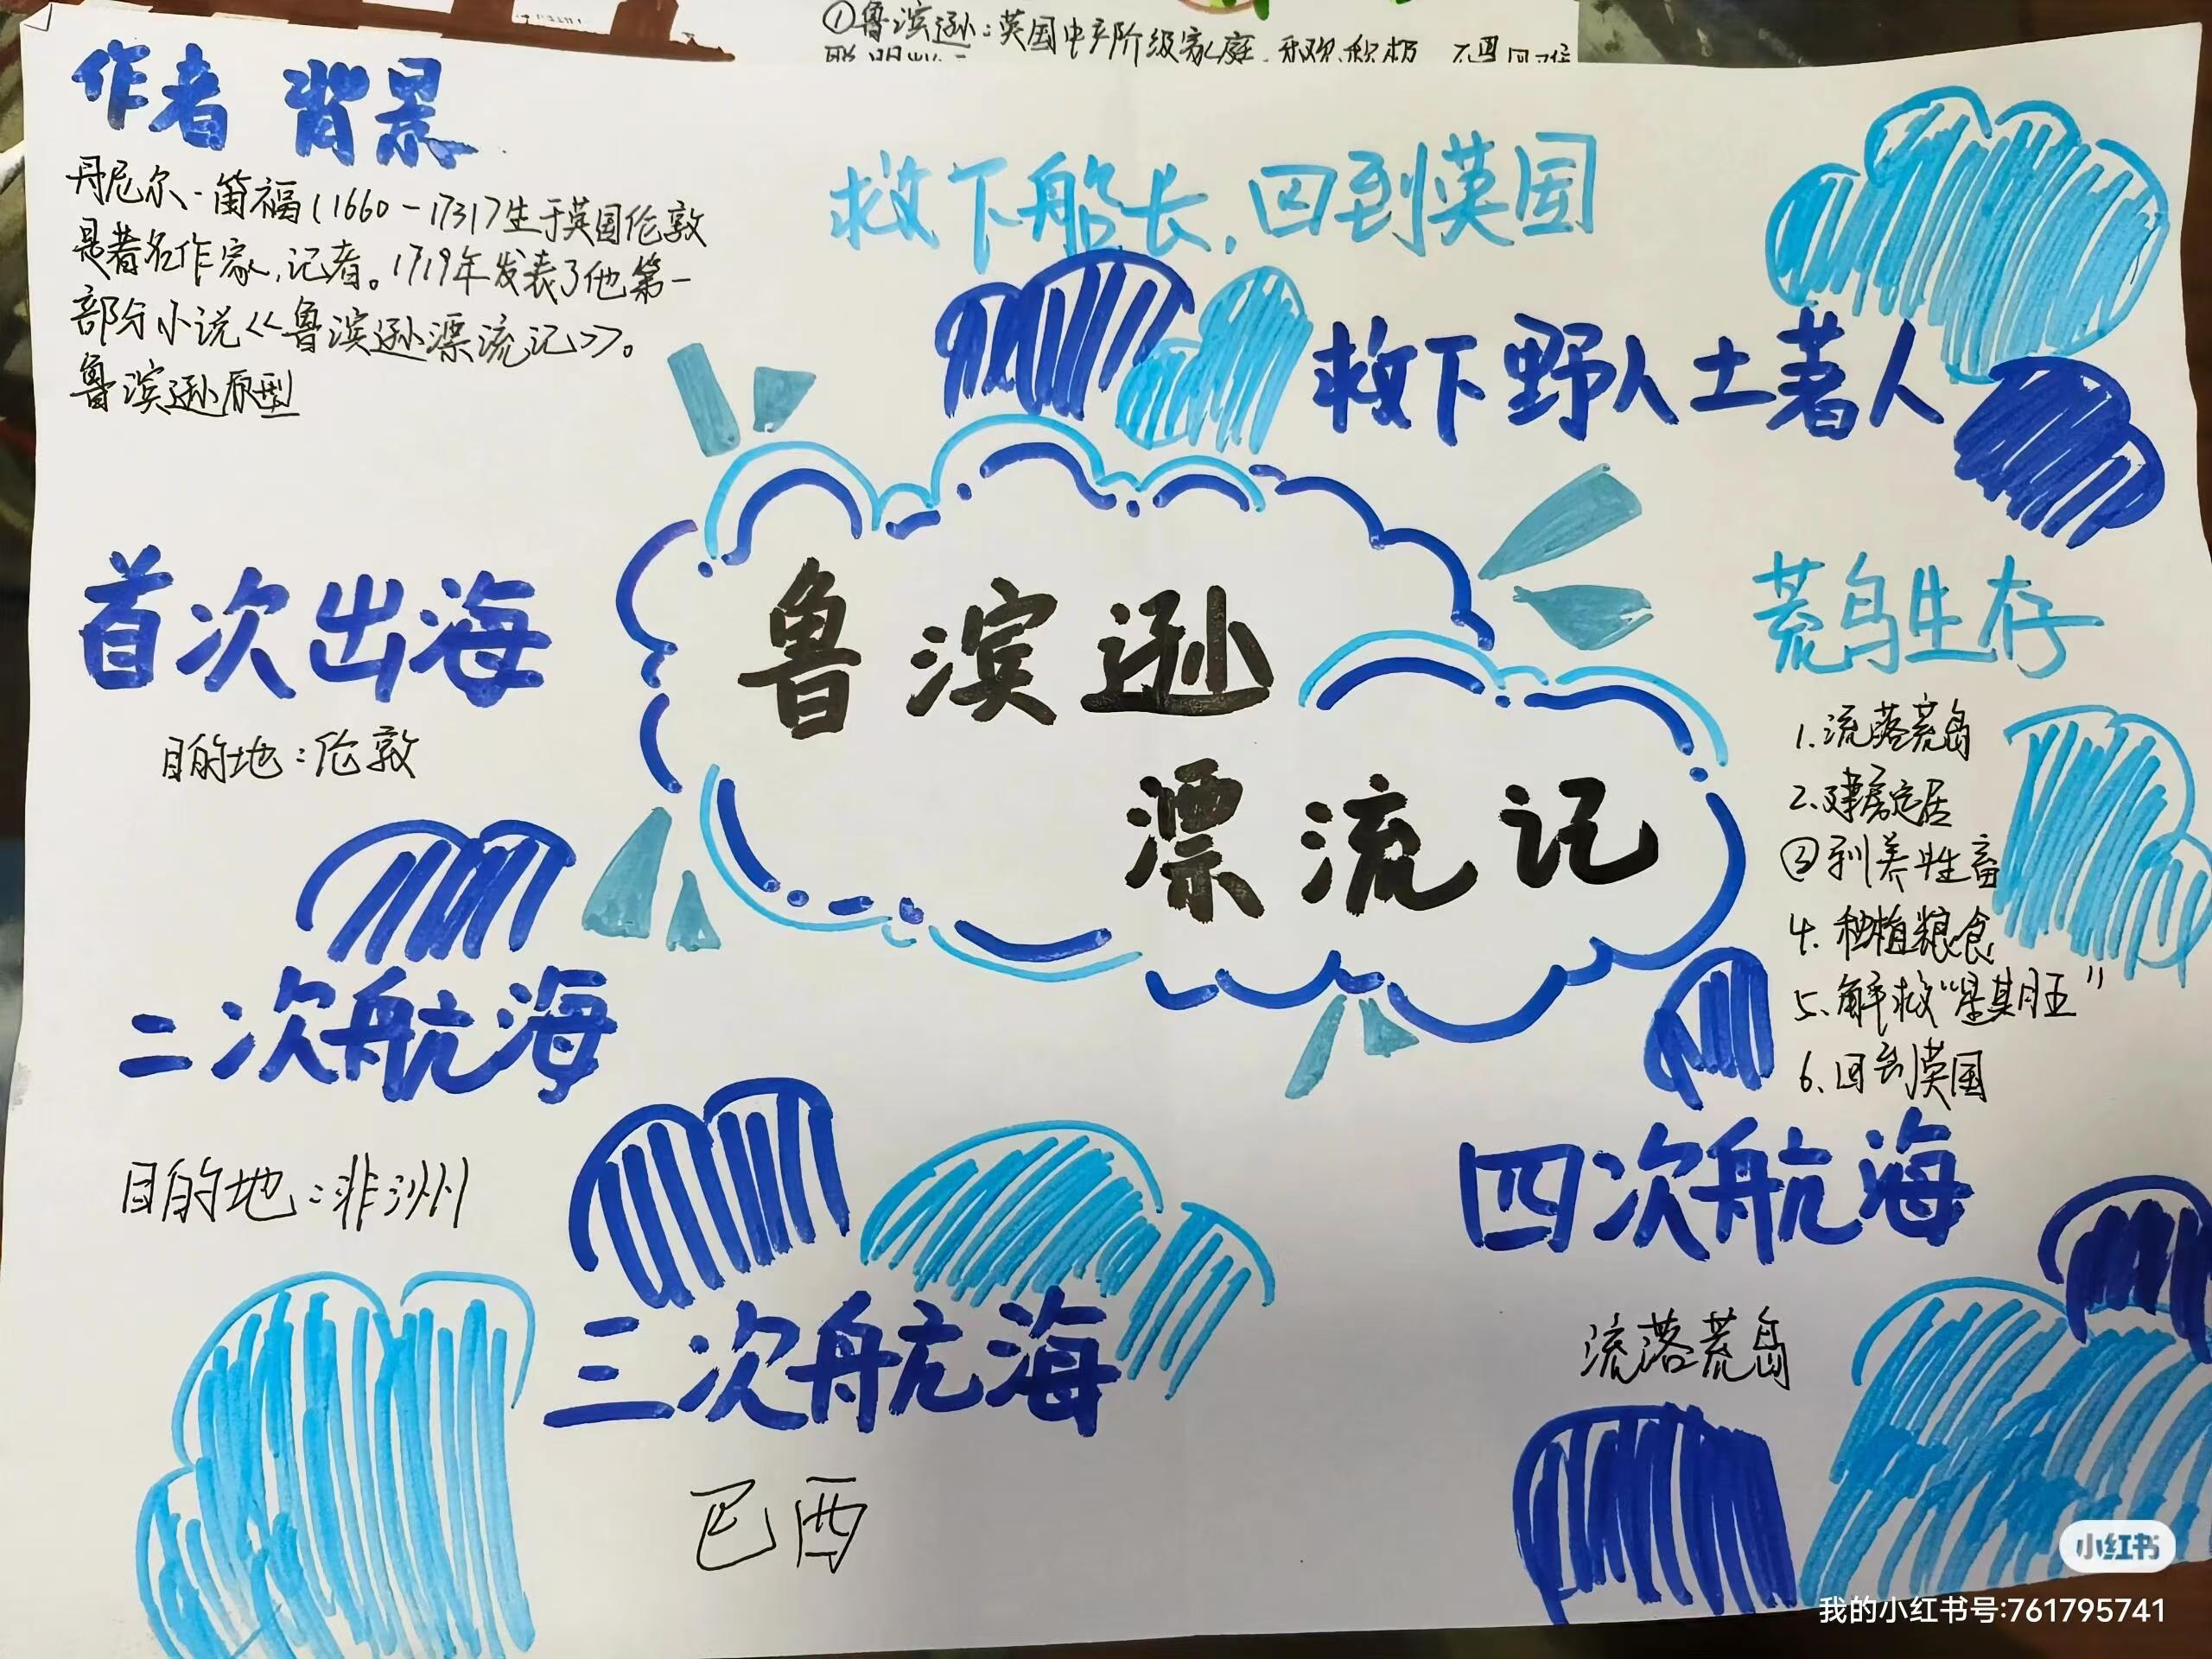 ①鲁滨逊：英国中产阶级家庭.
作者 背景
丹尼尔·笛福(1660-1731)生于英国伦敦
是著名作家,记者。1719年发表了他第一
部分小说<<鲁滨逊漂流记>>。
鲁滨逊原型
救下船长,回到英国
救下野人土著人
鲁滨逊
漂流记
首次出海
目的地：伦敦
二次航海
目的地：非洲
三次航海
巴西
荒岛生存
1.流落荒岛
2.建房定居
③驯养牲畜
4.种植粮食
5.解救“星期五”
6.回到英国
四次航海
流落荒岛
小红书
我的小红书号:761795741